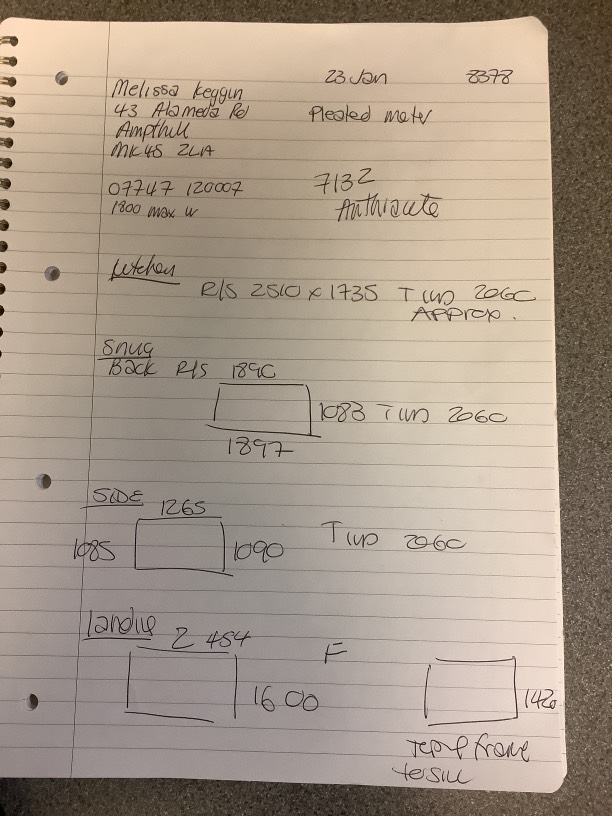 23 Jan 8378
Melissa Keggin
43 Alameda Rd
Ampthill
MK45 2LA
Pleated mater
07747 120007
1800 max w
7132
Anthracite
Kitchen
R/S 2510 x 1735 T UD 2060
APPROX.
Snug
Back R/S 1890
1083 T UD 2060
1897
SIDE 1265
1085 1090 T UD 2060
Landing 2 454
F
1600
1420
Top of frame
to sill